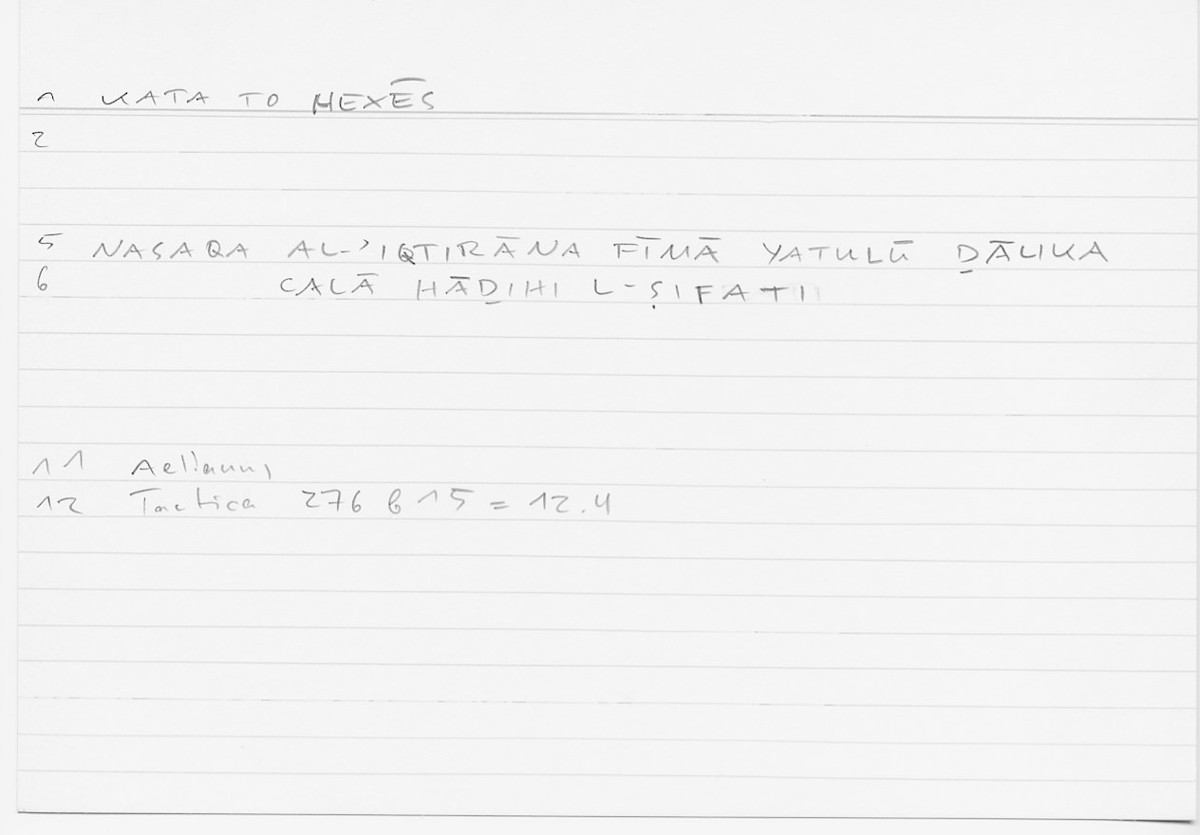 1 KATA TO HEXĒS
2
5 NASAQA AL-ʾIQTIRĀNA FĪMĀ YATULŪ ḎĀLIKA
6 CALĀ HĀḎIHI L-ṢIFATI
11 Aelianus
12 Tactica 276 b 15 = 12.4